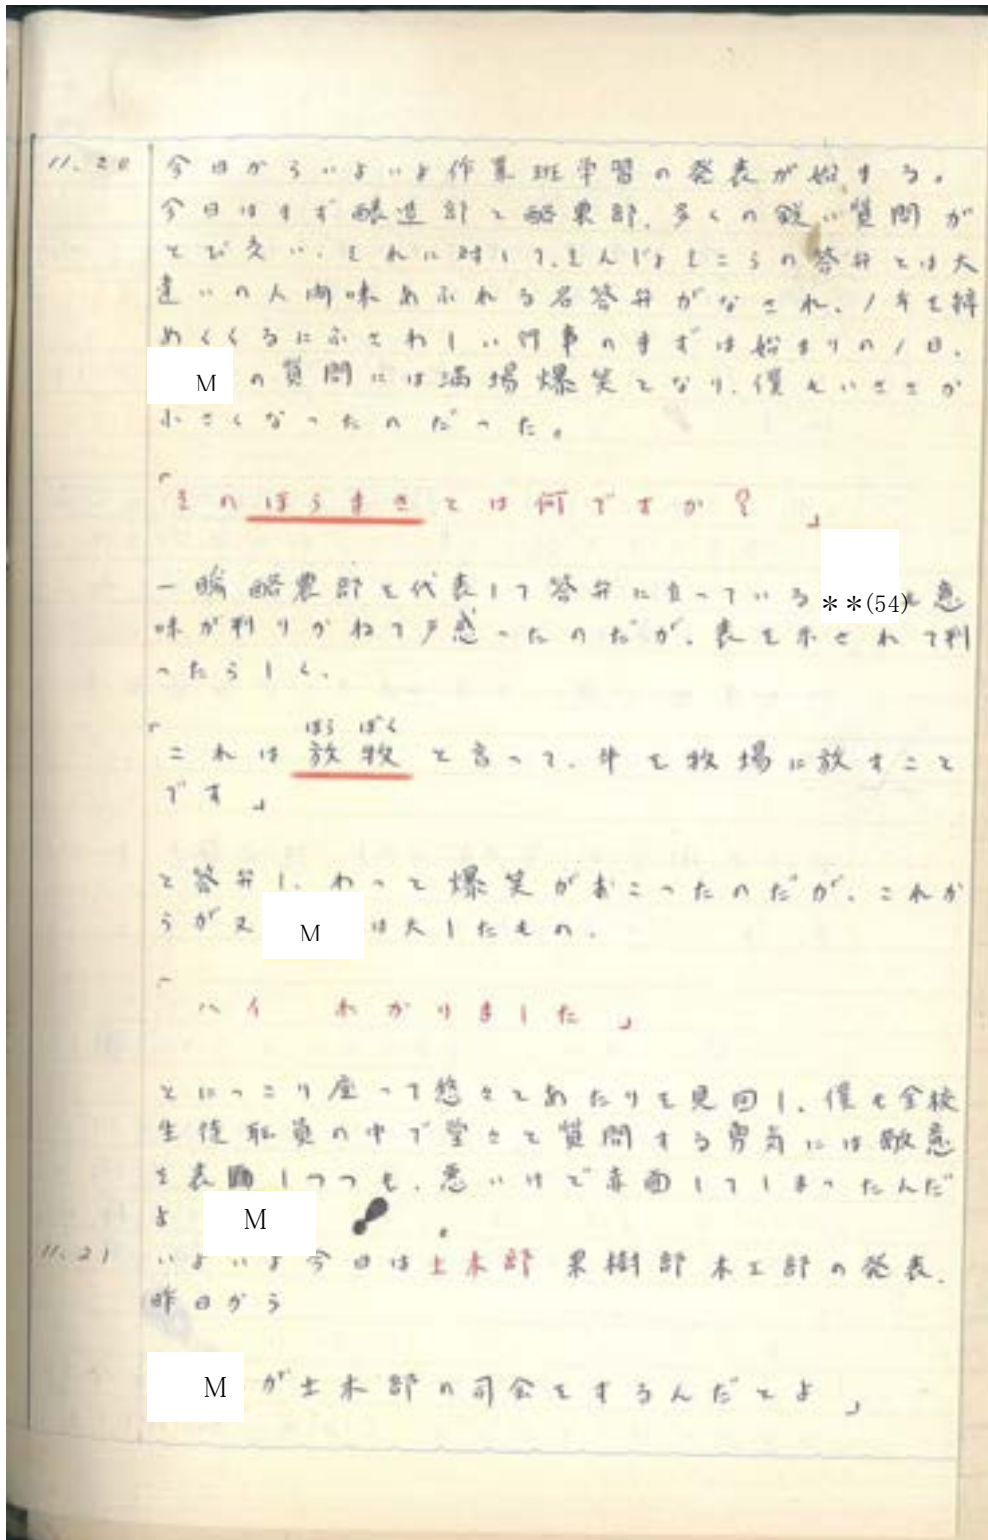 11.20 今日からいよいよ作業班学習の発表が始まる。
今日はまず醸造部と酪農部、多くの鋭い質問が
とび交い、それに対して、そんじょそこらの答弁とは大
違いの人間味あふれる名答弁がなされ、1年を締
めくくるにふさわしい行事のまずは始まりの1日、
M の質問には満場爆笑となり、僕もいささか
小さくなったのだった。
「そのぼうまきとは何ですか？」
一瞬酪農部を代表して答弁に立っている **(54)も意
味が判りかねて戸惑ったのだが、表を示されて判
ったらしく、
ほう ぼく
「これは放牧と言って、牛を牧場に放すこと
です」
と答弁し、わっと爆笑がおこったのだが、これか
らが又 M は大したもの、
「ハイ わかりました」
とにっこり座って悠々とあたりを見回し、僕も全校
生徒職員の中で堂々と質問する勇気には敬意
を表しつつも、悪いけど赤面してしまったんだ
よ M !
11.21 いよいよ今日は土木部 果樹部 木工部の発表、
昨日から
M が土木部の司会をするんだとよ」